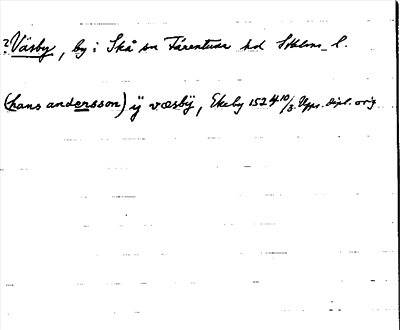 ? Väsby, by i Skå sn Färentuna hd Sthlms l.
(hans andersson) ÿ væsbÿ, Ekeby 1524 10/3. Upps. Dipl. orig